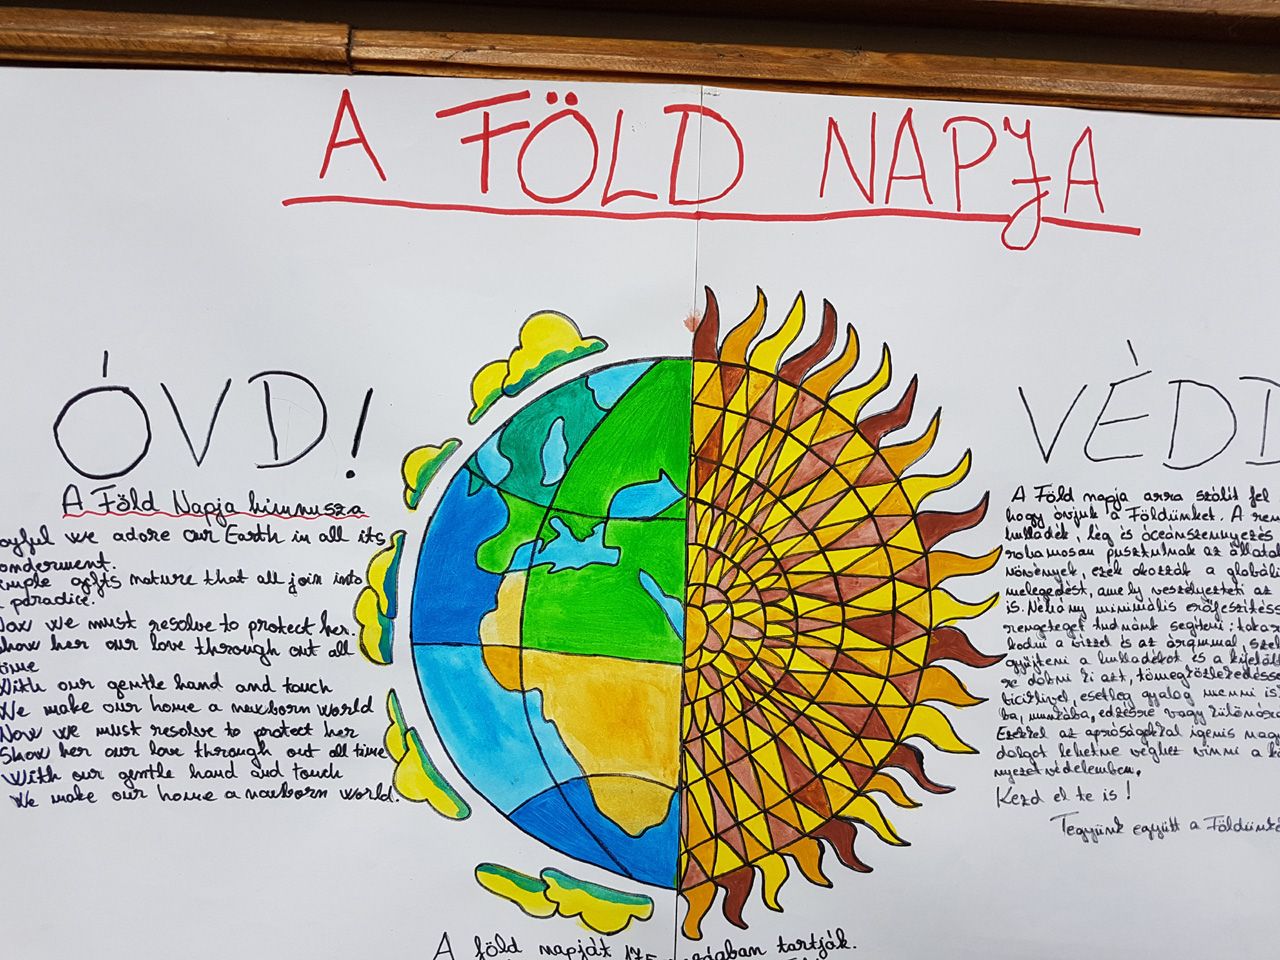 A FÖLD NAPJA
ÓVD!
A Föld Napja himnusza
oyful we adore our Earth in all its
onderment.
imple gifts nature that all join into
paradice.
Now we must resolve to protect her.
Show her our love through out all
time
With our gentle hand and touch
We make our home a newborn world
Now we must resolve to protect her
Show her our love through out all time
With our gentle hand and touch
We make our home a newborn world.
VÉDD
A Föld napja arra szólít fel
hogy óvjuk a Földünket. A ren
hulladék, lég és óceánszennyezés
rohamosan pusztulnak az állatok
növények, ezek okozzák a globáli
melegedést, amely veszélyezteti az
is. Néhány minimális erőfeszítéss
rengeteget tudnánk segíteni: taka
kodni a vízzel és az árammal, szel
gyűjteni a hulladékot és a kijelölt
re dobni ki azt, tömegközlekedésse
biciklivel, esetleg gyalog menni is
ba, munkába, edzésre vagy különóra
Ezekkel az apróságokkal igenis nagy
dolgot lehetne véghez vinni a kö
nyezetvédelemben.
Kezd el te is!
Tegyünk együtt a Földünké
A föld napját 175 országban tartják.